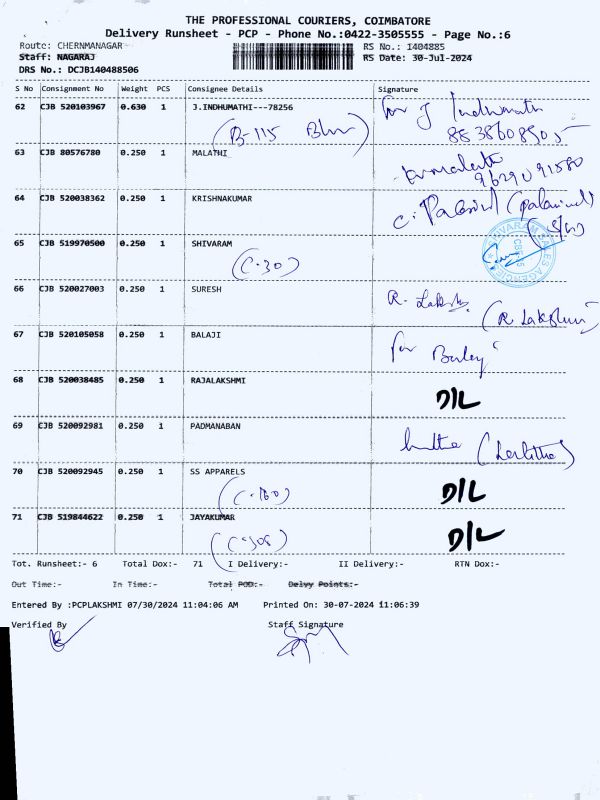 THE PROFESSIONAL COURIERS, COIMBATORE
Delivery Runsheet - PCP - Phone No.:0422-3505555 - Page No.:6
Route: CHERNMANAGAR RS No.: 1404885
Staff: NAGARAJ RS Date: 30-Jul-2024
DRS No.: DCJB140488506
S No Consignment No Weight PCS Consignee Details Signature
62 CJB 520103967 0.630 1 J.INDHUMATHI---78256 for J Indhumathi
(B-115 8838608505
63 CJB 80576780 0.250 1 MALATHI
9629091580
64 CJB 520038362 0.250 1 KRISHNAKUMAR C. Palanivel (palanivel)
65 CJB 519970500 0.250 1 SHIVARAM
(C-30)
66 CJB 520027003 0.250 1 SURESH R. Laksh
(R Lakshmi)
67 CJB 520105058 0.250 1 BALAJI for
68 CJB 520038485 0.250 1 RAJALAKSHMI D/L
69 CJB 520092981 0.250 1 PADMANABAN
70 CJB 520092945 0.250 1 SS APPARELS D/L
(C-160)
71 CJB 519844622 0.250 1 JAYAKUMAR D/L
Tot. Runsheet:- 6 Total Dox:- 71 I Delivery:- II Delivery:- RTN Dox:-
Out Time:- In Time:- Total POD:- Delvy Points:-
Entered By :PCPLAKSHMI 07/30/2024 11:04:06 AM Printed On: 30-07-2024 11:06:39
Verified By Staff Signature